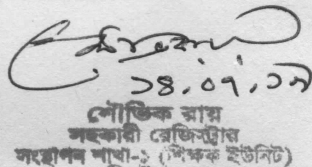 ১৪.০৭.১৯
শৌভিক রায়
সহকারী রেজিস্ট্রার
সংস্থাপন শাখা-১ (শিক্ষক ইউনিট)